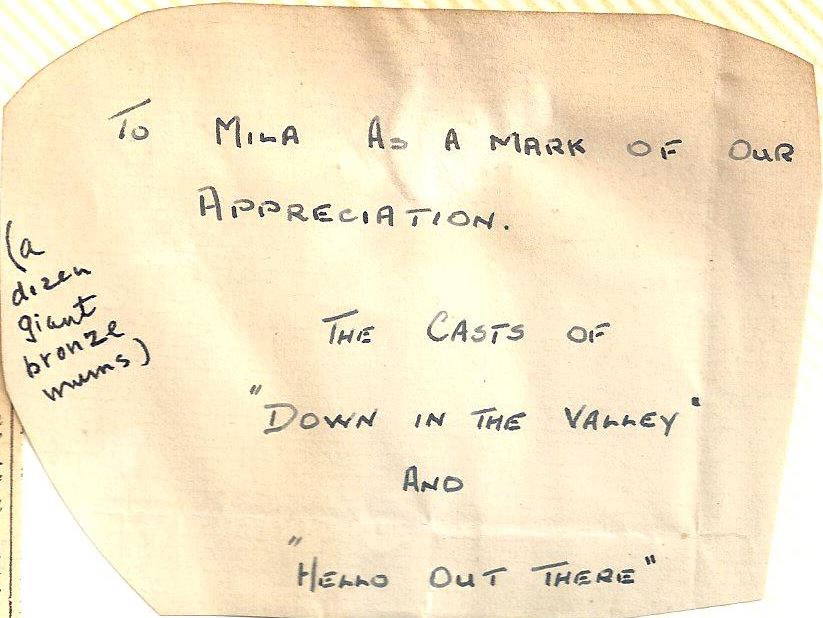 To MILA AS A MARK OF OUR
APPRECIATION.
(a
dozen
giant
bronze
mums)
THE CASTS OF
"DOWN IN THE VALLEY"
AND
"HELLO OUT THERE"